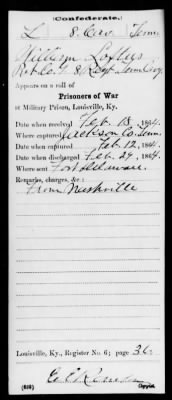 (Confederate.)
L 8 Cav Tenn
William Loftus
Pvt Co. 8 Regt Tenn Cav
Appears on a roll of
Prisoners of War
at Military Prison, Louisville, Ky.
Date when received Feb. 18, 1864.
Where captured Jackson Co. Tenn
Date when captured Feb. 12, 1864.
Date when discharged Feb. 29, 1864.
Where sent Fort Delaware
Remarks, charges, &c.:
From Nashville
Louisville, Ky., Register No. 6; page 36
(616) Copyist.